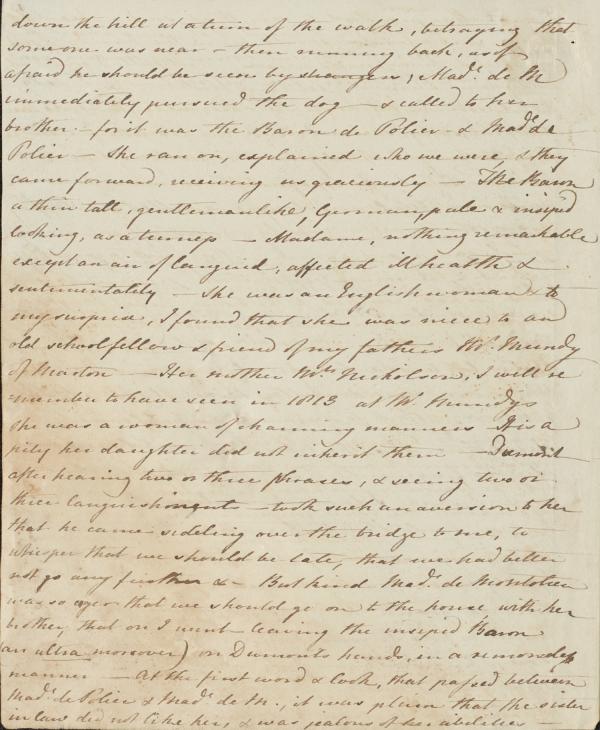 down the hill at a turn of the walk, betraying that
someone was near – then running back, as if
afraid he should be seen by strangers; Mad.e de M
immediately pursued the dog – & called to her
brother – for it was the Baron de Polier & Mad.e de
Polier – She ran on, explained who we were, & they
came forward, receiving us graciously – The Baron
a thin tall, gentlemanlike, German, pale & insipid
looking, as a turnep – Madame, nothing remarkable
except an air of languid, affected ill health &
sentimentality – She was an Englishwoman & to
my surprise, I found that she was niece to an
old schoolfellow & friend of my fathers Mr. Mundy
of Marton – Her mother Mrs Nicholson, I well re
-member to have seen in 1813 at Mr. Mundys
She was a woman of charming manners It is a
pity her daughter did not inherit them – Dumont
after hearing two or three phrases, & seeing two or
three languishments – took such an aversion to her
that he came sideling over the bridge to me, to
whisper that we should be late, that we had better
not go any further &c – But kind Mad.e de Montolieu
was so eager that we should go on to the house with her
brother, that on I went leaving the insipid Baron
(an ultra moreover) on Dumonts hands, in a remorseless
manner – At the first word & look, that passed between
Mad.e de Polier & Mad.e de M., it was plain that the sister
in law did not like her, & was jealous of her abilities –